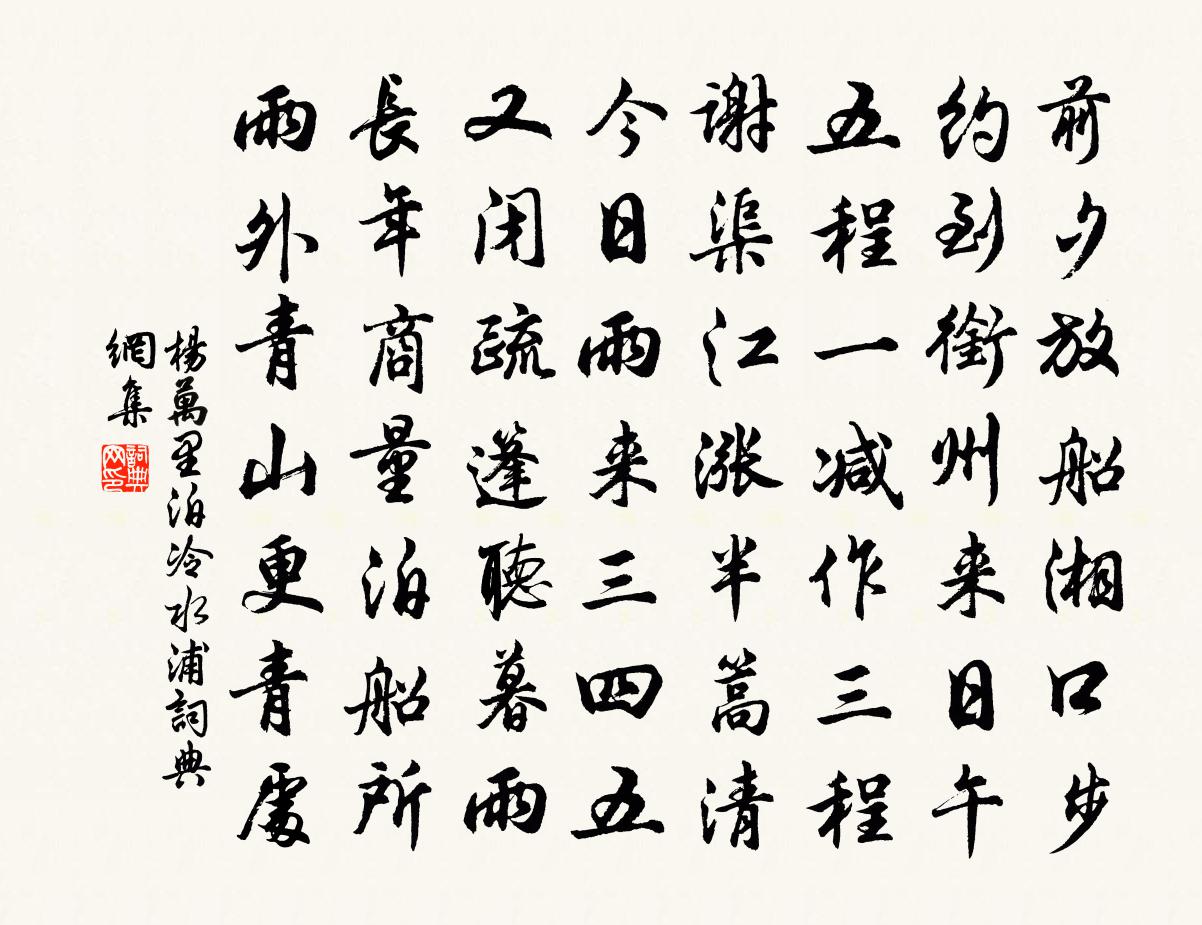 前夕放船湘口步
約到衡州来日午
五程一减作三程
謝渠江漲半篙清
今日雨来三四五
又閉疏篷聽暮雨
長年商量泊船所
雨外青山更青處
楊萬里泊冷水浦詞典
網集
詞典网印